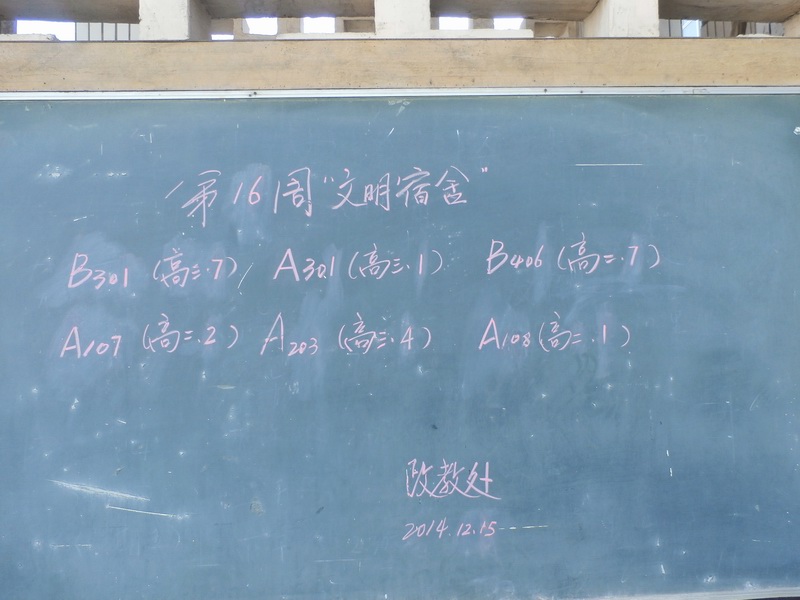 第16周“文明宿舍”
B301(高三.7), A301(高三.1) B406(高二.7)
A107(高二.2) A203(高三.4) A108(高二.1)
政教处
2014.12.15